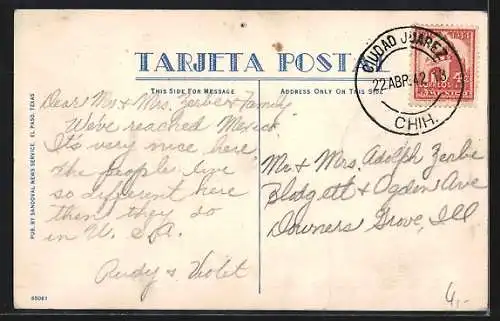 TARJETA POSTAL
THIS SIDE FOR MESSAGE
ADDRESS ONLY ON THIS SIDE
CIUDAD JUAREZ
22 ABR. 42. 18
CHIH.
Dear Mr & Mrs. Zerbe & Family
We've reached Mexico
It's very nice here
The people live
so different here
then they do
in U. S. A.
Rudy & Violet
Mr & Mrs. Adolph Zerbe
Blodgett & Ogden Ave
Downers Grove, Ill
PUB. BY SANDOVAL NEWS SERVICE. EL PASO, TEXAS
65061
4,-